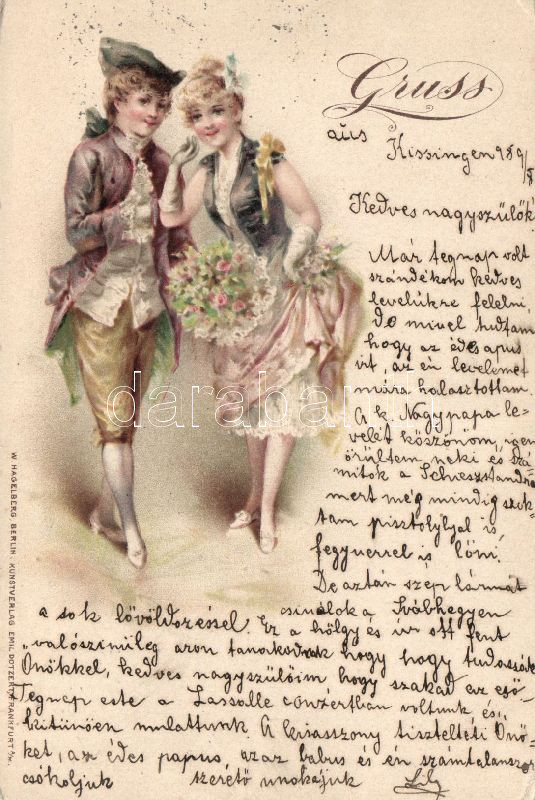 Gruss
aus Kissingen 989/8
Kedves nagyszülők!
Már tegnap volt
szándékom kedves
levelükre felelni,
de mivel tudtam
hogy az édesapus
irt, az én levelemet
mára halasztottam.
A k. Nagypapa le-
velét köszönöm, igen
örültem neki és szá-
mitok a Scheszstandra
mert még mindig szok-
tam pisztolylyal is,
fegyverrel is lőni.
De aztán szép lármát
csinálok a Svábhegyen
a sok lövöldözéssel. Ez a hölgy és úr ott fent
valószinüleg azon tanakodnak hogy hogy tudassák
Önökkel, kedves nagyszülőim hogy szakad az eső.
Tegnap este a Lassalle conzertban voltunk és
kitünően mulattunk. A kisasszony tisztelteti Önö-
ket, az édes papus, azaz babus és én számtalanszor
csókoljuk szerető unokájuk
Lily
W. HAGELBERG BERLIN. KUNSTVERLAG EMIL DOTZERT, FRANKFURT a/M.
darabanth